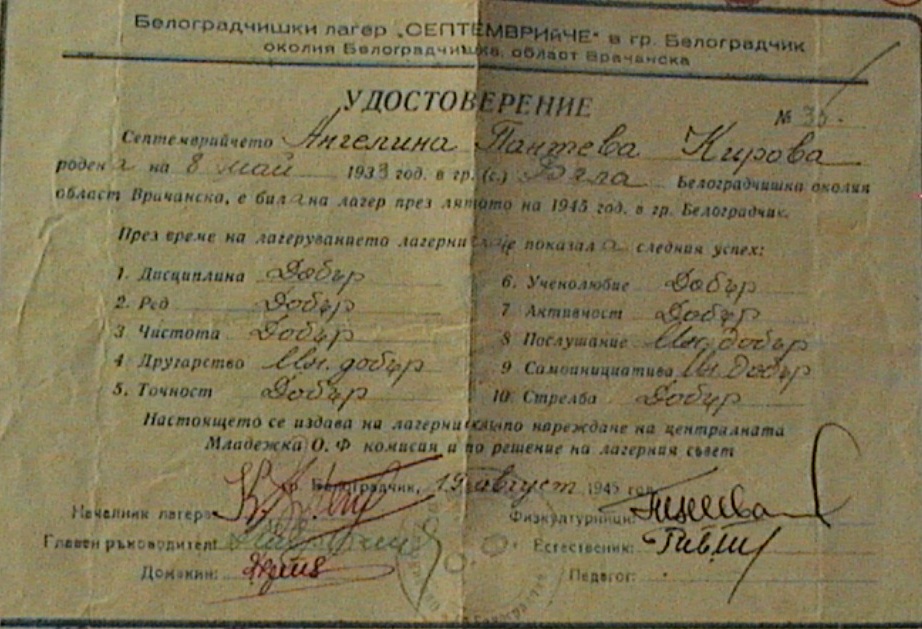 Белоградчишки лагер „СЕПТЕМВРИйЧЕ" в гр. Белоградчик
околия Белоградчишка, област Врачанска
УДОСТОВЕРЕНИЕ
№
Септемврийчето Ангелина Пантева Кирова
родена на 8 май 1933 год. в гр. (с.) Бела Белоградчишка околия
област Врачанска, е била на лагер през лятото на 1945 год. в гр. Белоградчик.
През време на лагеруването е показала следния успех:
1. Дисциплина Добър
2. Ред Добър
3 Чистота Добър
4 Другарство Мн. добър
5. Точност Добър
6. Ученолюбие Добър
7 Активност Добър
8 Послушание Мн. добър
9 Самоинициатива Мн. Добър
10. Стрелба Добър
Настоящето се издава на по нареждане на централната
Младежка О. Ф комисия и по решение на лагерния съвет
гр. Белоградчик, август 1945 год.
Началник лагера:
Главен ръководител:
Домакин:
Физкултурници:
Естественик:
Педагог: